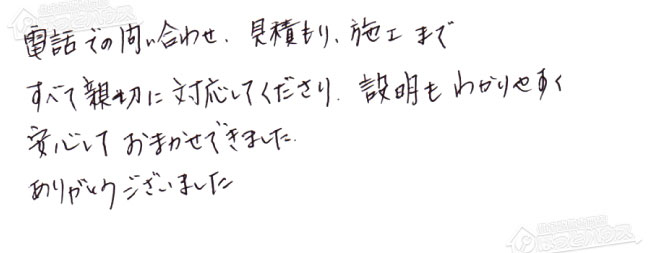 電話での問い合わせ、見積もり、施工まで
すべて親切に対応してくださり、説明もわかりやすく
安心しておまかせできました.
ありがとうございました